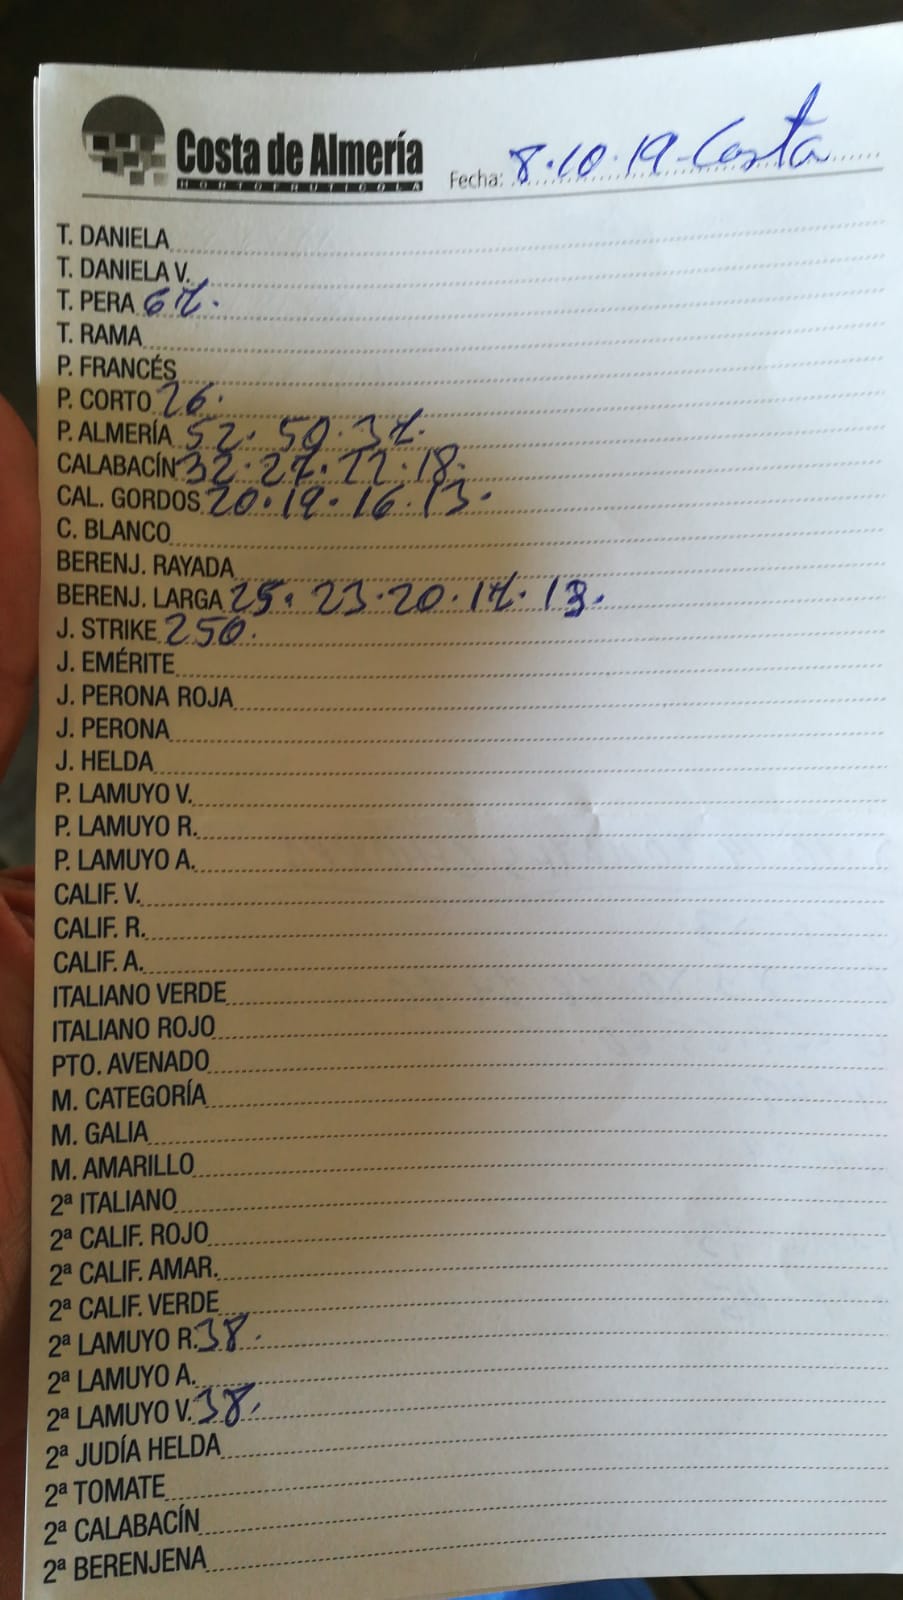 Costa de Almería
HORTOFRUTICOLA
Fecha: 8.10.19-Costa
T. DANIELA
T. DANIELA V.
T. PERA 67.
T. RAMA
P. FRANCÉS
P. CORTO 26.
P. ALMERÍA 52. 50. 37.
CALABACÍN 32. 27. 22. 18.
CAL. GORDOS 20. 19. 16. 13.
C. BLANCO
BERENJ. RAYADA
BERENJ. LARGA 25. 23. 20. 17. 13.
J. STRIKE 250.
J. EMÉRITE
J. PERONA ROJA
J. PERONA
J. HELDA
P. LAMUYO V.
P. LAMUYO R.
P. LAMUYO A.
CALIF. V.
CALIF. R.
CALIF. A.
ITALIANO VERDE
ITALIANO ROJO
PTO. AVENADO
M. CATEGORÍA
M. GALIA
M. AMARILLO
2ª ITALIANO
2ª CALIF. ROJO
2ª CALIF. AMAR.
2ª CALIF. VERDE
2ª LAMUYO R. 38.
2ª LAMUYO A.
2ª LAMUYO V. 38.
2ª JUDÍA HELDA
2ª TOMATE
2ª CALABACÍN
2ª BERENJENA